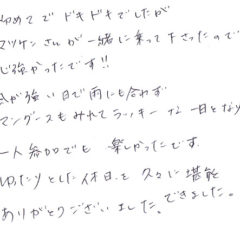 初めてで ドキドキでしたが
マツケンさんが一緒に乗って下さったので
心強かったです!!
が強い日で雨にも合わず
マングースもみれてラッキーな一日となり
一人参加でも 楽しかったです。
ゆったりとした休日を久々に堪能
できました。
ありがとうございました。